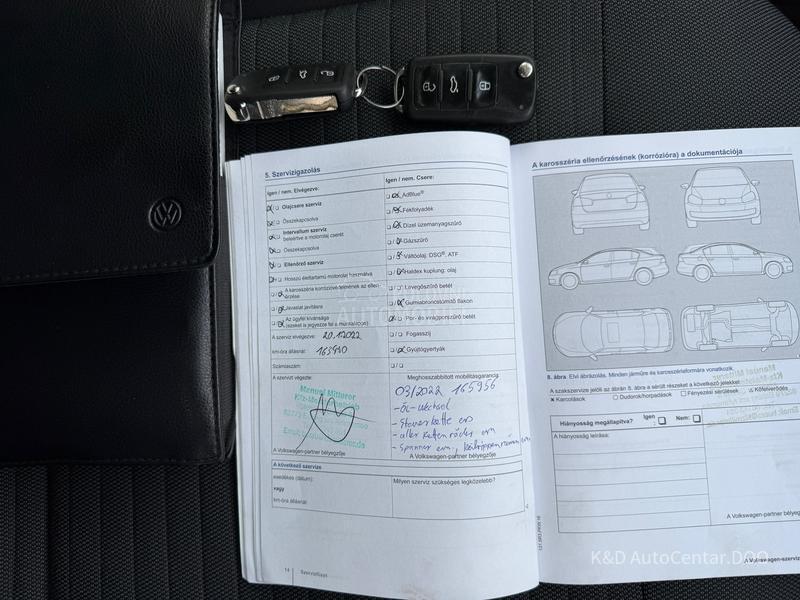 5. Szervizigazolás
Igen / nem. Elvégezve:
Olajcsere szerviz
Összekapcsolva
Intervallum szerviz
beleértve a motorolaj cserét
Összekapcsolva
Ellenőrző szerviz
Hosszú élettartamú motorolaj használva
A karosszéria korrózióvédelmének az ellenőrzése
Javaslat javításra
Az ügyfél kívánsága
(ezeket a jegyezze fel a munkalapon)
A szerviz elvégezve: 20.1.2022
km-óra állásnál: 163940
Számlaszám:
A szervizt végezte:
Manuel Mitterer
A Volkswagen-partner bélyegzője
Igen / nem. Csere:
AdBlue®
Fékfolyadék
Dízel üzemanyagszűrő
Gázszűrő
Váltóolaj: DSG®, ATF
Haldex kuplung: olaj
Levegőszűrő betét
Gumiabroncstömítő flakon
Por- és virágporszűrő betét
Fogasszíj
Gyújtógyertyák
Meghosszabbított mobilitásgarancia
03/2022 165956
-Öl-wechsel
- Steuerkette ern
- alle Kettenräder ern
- Spanner ern,
A Volkswagen-partner bélyegzője
A következő szerviz
esedékes (dátum):
vagy
km-óra állásnál:
Milyen szerviz szükséges legközelebb?
14
Szervizfüzet
A karosszéria ellenőrzésének (korrózióra) a dokumentációja
8. ábra Elvi ábrázolás. Minden járműre és karosszériaformára vonatkozik.
A szakszervize jelöli az ábrán 8. ábra a sérült részeket a következő jelekkel:
× Karcolások
Dudorok/horpadások
Fényezési sérülések
Kőfelverődés
Hiányosság megállapítva?
Igen :
Nem:
A hiányosság leírása:
A Volkswagen-partner bélyeg
A Volkswagen-szerviz
K&D AutoCentar.DOO